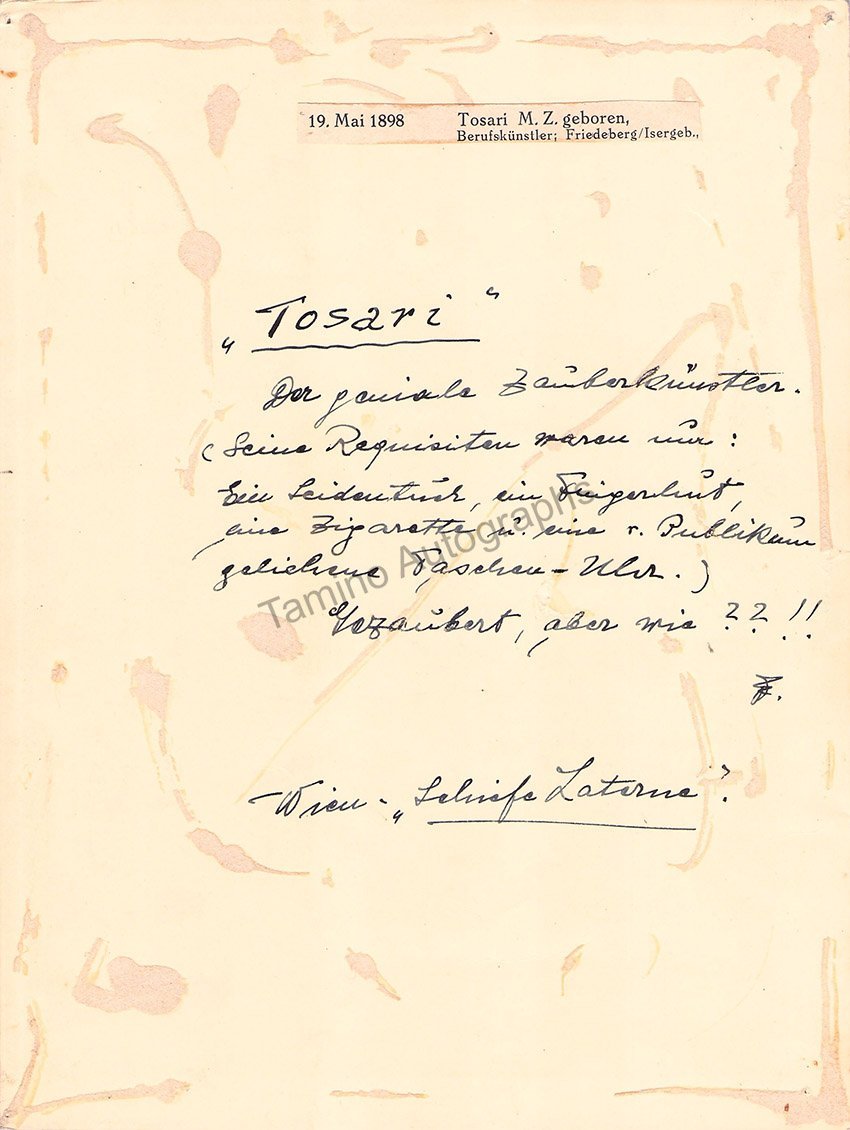 19. Mai 1898 Tosari M. Z. geboren,
Berufskünstler; Friedeberg/Isergeb.,
„Tosari“
Der geniale Zauberkünstler.
(Seine Requisiten waren nur:
Ein Seidentuch, ein Fingerhut,
eine Zigarette u. eine v. Publikum
geliehene Taschen-Uhr.)
Gezaubert, aber wie ??!!
Wien - „Schiefe Laterne“.
Tamino Autographs